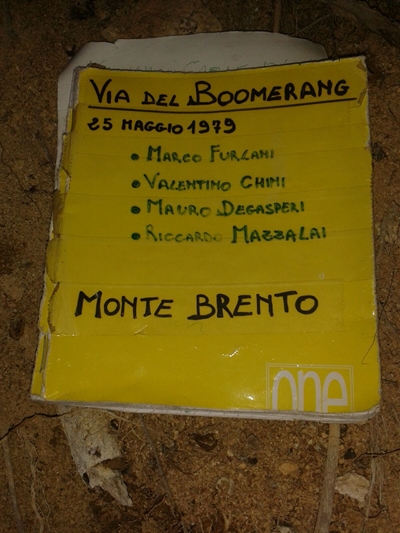 VIA DEL BOOMERANG
25 MAGGIO 1979
• MARCO FURLANI
• VALENTINO CHINI
• MAURO DEGASPERI
• RICCARDO MAZZALAI
MONTE BRENTO
one